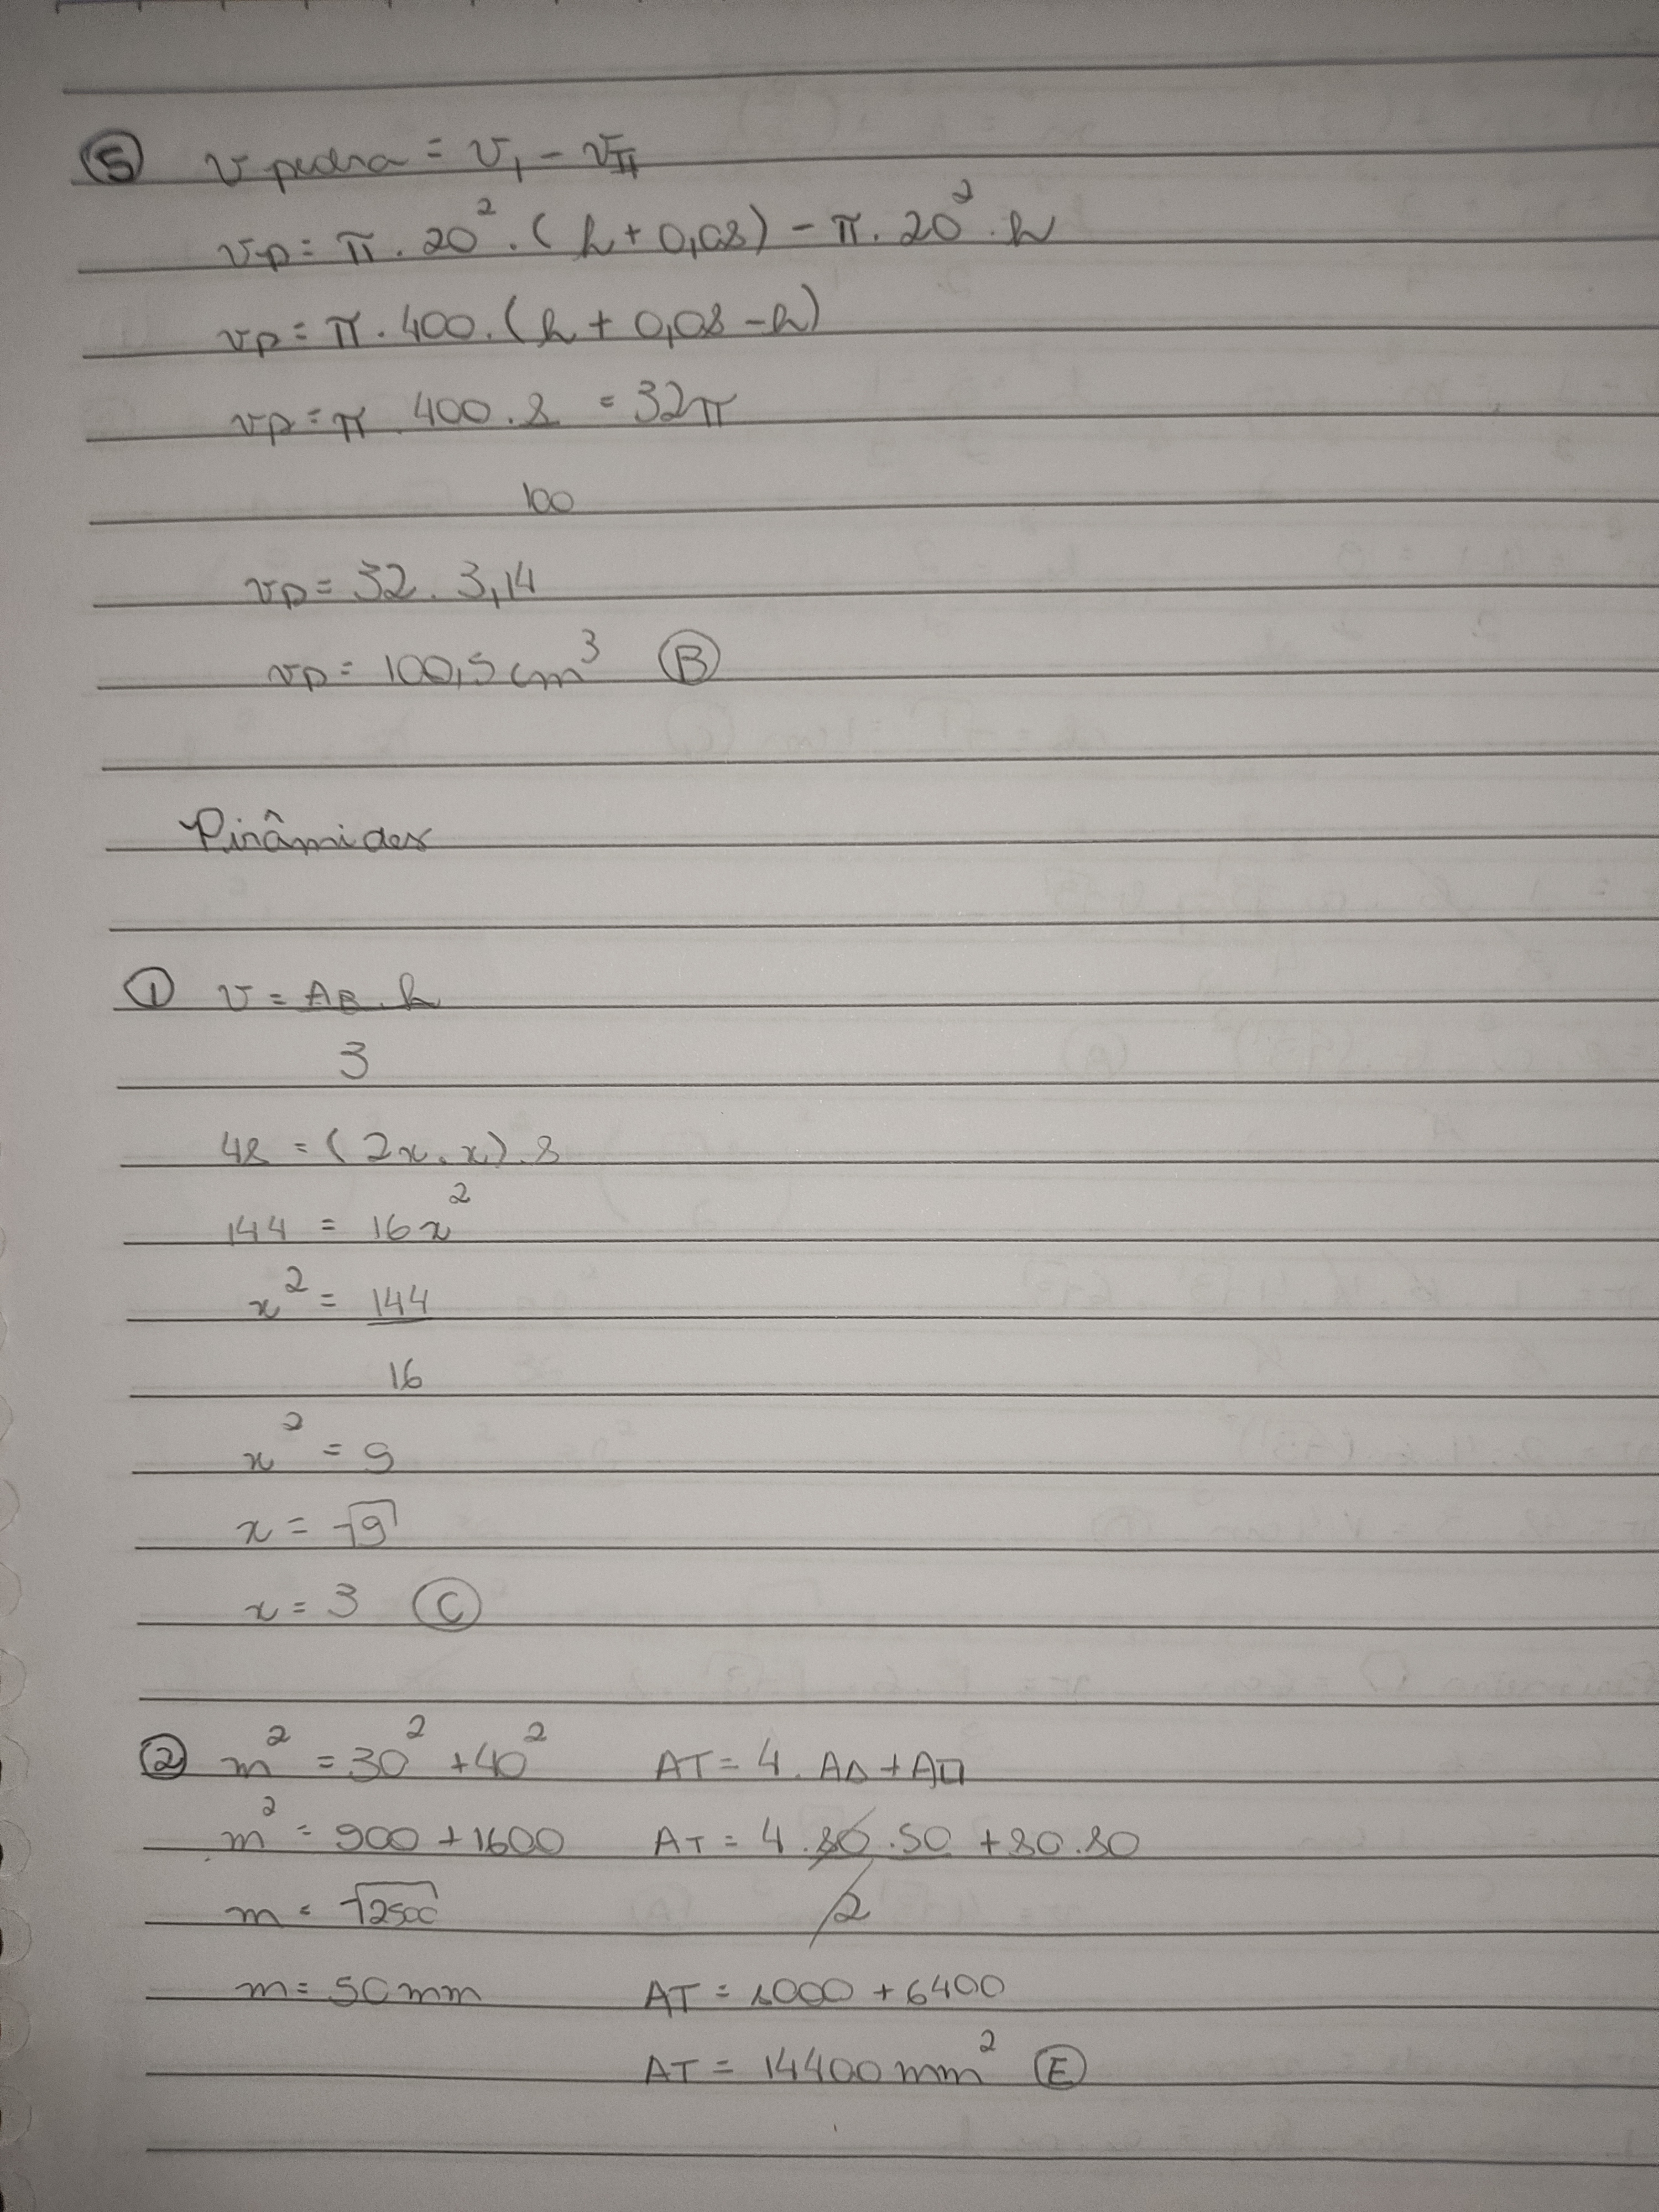 ⑤ v pedra = v₁ - vII
vp = π . 20² . (h + 0,08) - π . 20² . h
vp = π . 400 . (h + 0,08 - h)
vp = π . 400 . 8 = 32π
100
vp = 32 . 3,14
vp = 100,5 cm³ Ⓑ
Pirâmides
① v = AB . h
3
48 = (2x . x) . 8
144 = 16x²
x² = 144
16
x² = 9
x = √9
x = 3 Ⓒ
② m² = 30² + 40² AT = 4 . A△ + A□
m² = 900 + 1600 AT = 4 . 80 . 50 + 80 . 80
m = √2500 2
m = 50 mm AT = 8000 + 6400
AT = 14400 mm² Ⓔ